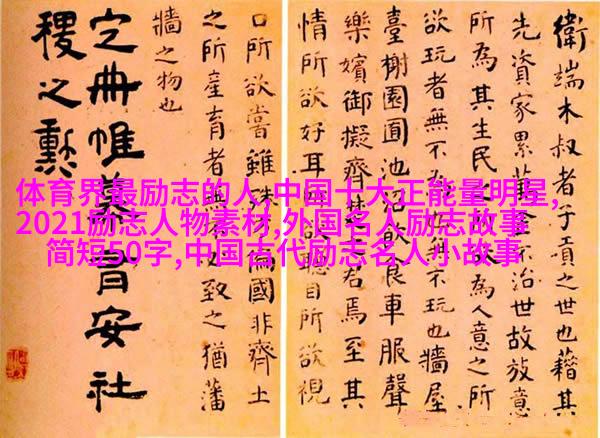 衛端木叔者子貢之世也藉其
先資家累萬不治世故放意
所為其生民之為人意之所
欲玩者無不為也不玩也牆屋
臺榭園囿池沼飲食車服聲
樂嬪御擬齊楚君焉至其
情所欲好耳所欲聽目所欲視
口所欲嘗雖殊偏國非齊土
之所產育者無必致之猶藩
牆之物也
定冊帷幕有安社
稷之勲
体育界最励志的人,中国十大正能量明星,
2021励志人物素材,外国名人励志故事
简短50字,中国古代励志名人小故事